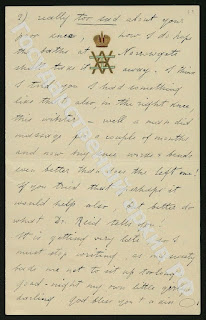 2) really too sad about your
poor knee how I do hope
the baths at
she was so far away, I think
I told you I had something
like this also, in the right knee,
this winter – well a man did
massage for a couple of months
and now my knee works & bends
even better than does the left one!
If you tried that perhaps it
would help also. But better do
what Dr. Reid tells you.
It is getting very late so I
must stop writing, as my sweety
bids me not to sit up
good-night my own little
darling God bless you &